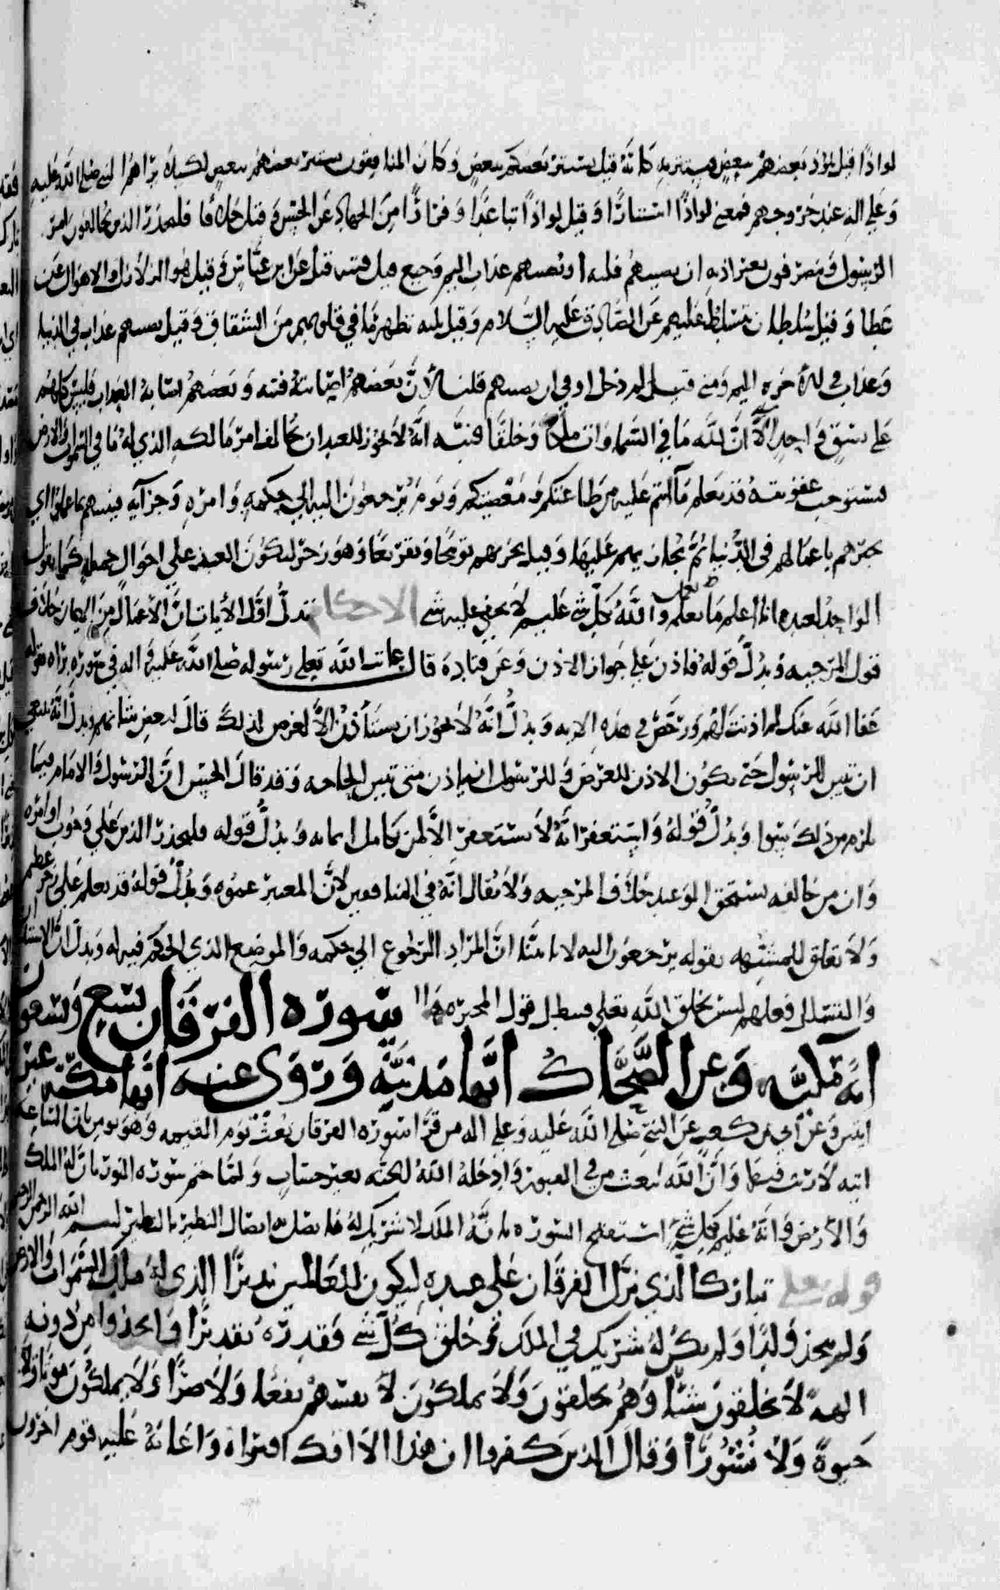 لواذا قيل يلوذ بعضهم ببعض يستتر به كأنه قيل يستتر بعضكم ببعض وكان المنافقون يستتر بعضهم ببعض لكيلا يراهم النبي صلى الله عليه
وعلى اله عند خروجهم فمعنى لواذا استتارا وقيل لواذا تباعدا وفرارا من الجهاد عن الحسن وقيل خلافا فليحذر الذين يخالفون امر
الرسول وينصرفون بغير اذنه ان يصيبهم فتنة او يصيبهم عذاب اليم وجيع قيل فتنة قتل عن ابن عباس وقيل هو الزلازل والاهوال عن
عطا وقيل سلطان يتسلط عليهم عن الصادق عليه السلام وقيل بلية تظهر ما في قلوبهم من النفاق وقيل يصيبهم عذاب في الدنيا
وعذاب في الاخرة اليم ومتى قيل لم دخل او في ان يصيبهم قلنا لأن بعضهم اصابته فتنة وبعضهم اصابه العذاب فليس كلهم
على نسق واحد ألا ان لله ما في السماوات ملكا وخلقا فنبه انه لا يجوز للعبد ان يخالف امر مالكه الذي له ما في السموات والارض
فيستوجب عقوبته قد يعلم ما انتم عليه من طاعتكم ومعصيتكم ويوم يرجعون اليه الى حكمه وامره وجزآيه فينبيهم بما عملوا اي
يخبرهم باعمالهم في الدنيا ثم يجازيهم عليها وقيل يخبرهم توبيخا وتقريعا وهو زجر ليكون العبد على احوال جميلة كما يقول
الواحد لعبده انا اعلم ما تعمله والله بكل شي عليم لا يخفى عليه شي الاحكام تدل اول الآيات ان الأعمال من الإيمان خلاف
قول المرجيه ويدل قوله فاذن على جواز الاذن وعن قتادة قال عاتب الله تعلى رسوله صلى الله عليه واله في سورة براه بقوله
عفا الله عنك لم اذنت لهم ورخص في هذه الايه ويدل انه لا يجوز ان يستأذن الا لغرض لذلك قال لبعض شانهم ويدل انه ينبغي
ان يتبين للرسول حتى يكون الاذن للغرض وللرسول ان ياذن متى تبين الحاجه وقد قال الحسن ان الرسول والامام فيما
يلزم من ذلك سوا ويدل قوله واستغفر انه لا يستغفر الا لمن تكامل ايمانه ويدل قوله فليحذر الذين على وجوب اوامره
وان من خالفه يستحق الوعيد خلاف المرجيه ولا يقال انه في المنافقين لأن المعتبر عمومه ويدل قوله قد يعلم على زجر عظيم
ولا تعلق للمشبهه بقوله يرجعون اليه لانا بينا ان المراد الرجوع الى حكمه والموضع الذي الحكم فيه له ويدل ان الاستئذان
والتسلل فعلهم ليس بخلق الله تعلى فيبطل قول المجبره سورة الفرقان سبع وسبعون
اية مكية وعن الضحاك انها مدنية وروى عنه انها مكية غير
ايتين وعن ابي بن كعب عن النبي صلى الله عليه وعلى اله من قرا سورة الفرقان بعث يوم القيمه وهو يومن بان الساعة
اتيه لا ريب فيها وان الله يبعث من في القبور وادخله الله الجنة بغير حساب ولما ختم سورة النور بان له الملك
والأرض وانه عليم بكل شي استفتح السورة بانه له الملك لا شريك له فاتصل به اتصال النظير بالنظير بسم الله الرحمن الرحيم
قوله تعلى تبارك الذي نزل الفرقان على عبده ليكون للعالمين نذيرا الذي له ملك السموات والارض
ولم يتخذ ولدا ولم يكن له شريك في الملك وخلق كل شي فقدره تقديرا واتخذوا من دونه
الهة لا يخلقون شيئا وهم يخلقون ولا يملكون لأنفسهم نفعا ولا ضرا ولا يملكون موتا ولا
حيوة ولا نشورا وقال الذين كفروا ان هذا الا افك افتراه واعانه عليه قوم اخرون